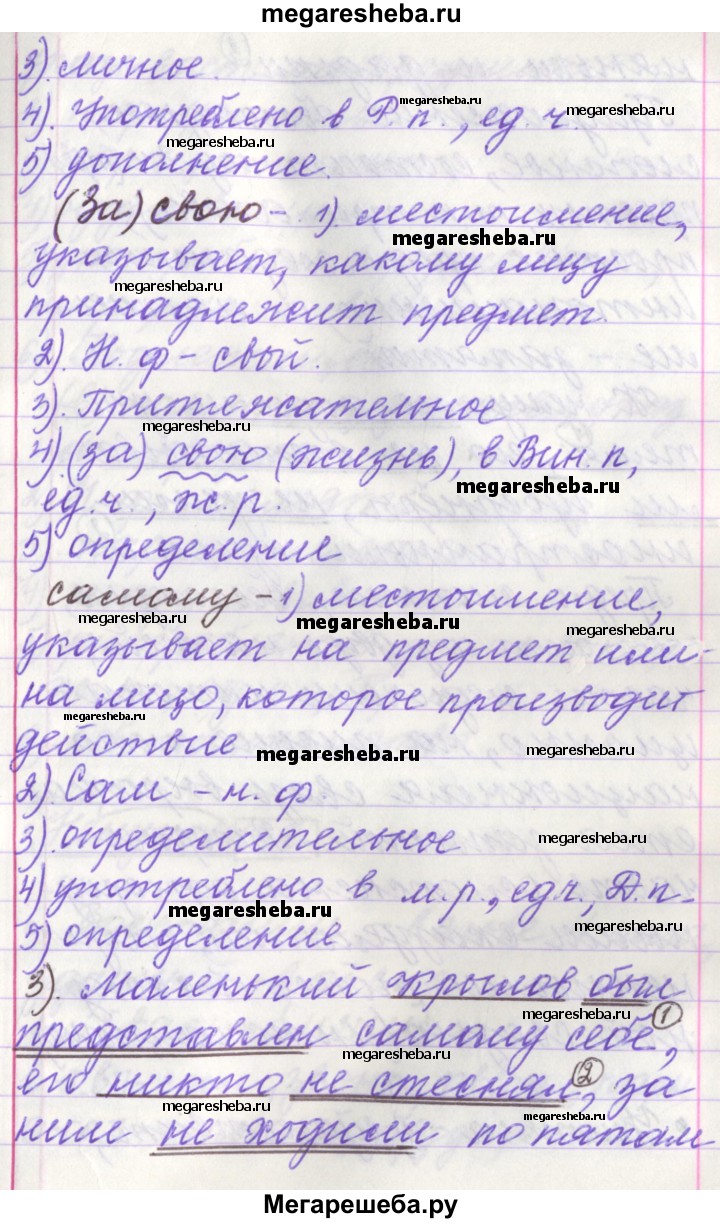 megaresheba.ru
3). личное.
4). Употреблено в Р.п., ед. ч.
megaresheba.ru
megaresheba.ru
megaresheba.ru
5) дополнение.
(За) свою - 1). местоимение,
megaresheba.ru
указывает, какому лицу
megaresheba.ru
принадлежит предмет.
2). Н. ф - свый.
3). Притяжательное
megaresheba.ru
4) (за) свою (жизнь), в Вин. п,
megaresheba.ru
ед.ч., ж. р.
5) определение
самому - 1) местоимение,
megaresheba.ru
megaresheba.ru
megaresheba.ru
указывает на предмет или-
на лицо, которое производит
megaresheba.ru
действие
megaresheba.ru
megaresheba.ru
2) Сам - н. ф.
3) определительное
megaresheba.ru
4) употреблено в м.р., ед.ч., Д.п-
megaresheba.ru
megaresheba.ru
5) определение
3). Маленький Крылов был
megaresheba.ru
представлен самому себе 1,
megaresheba.ru
его никто не стеснял 2, за
megaresheba.ru
megaresheba.ru
ним не ходили по пятам
Мегарешеба.ру